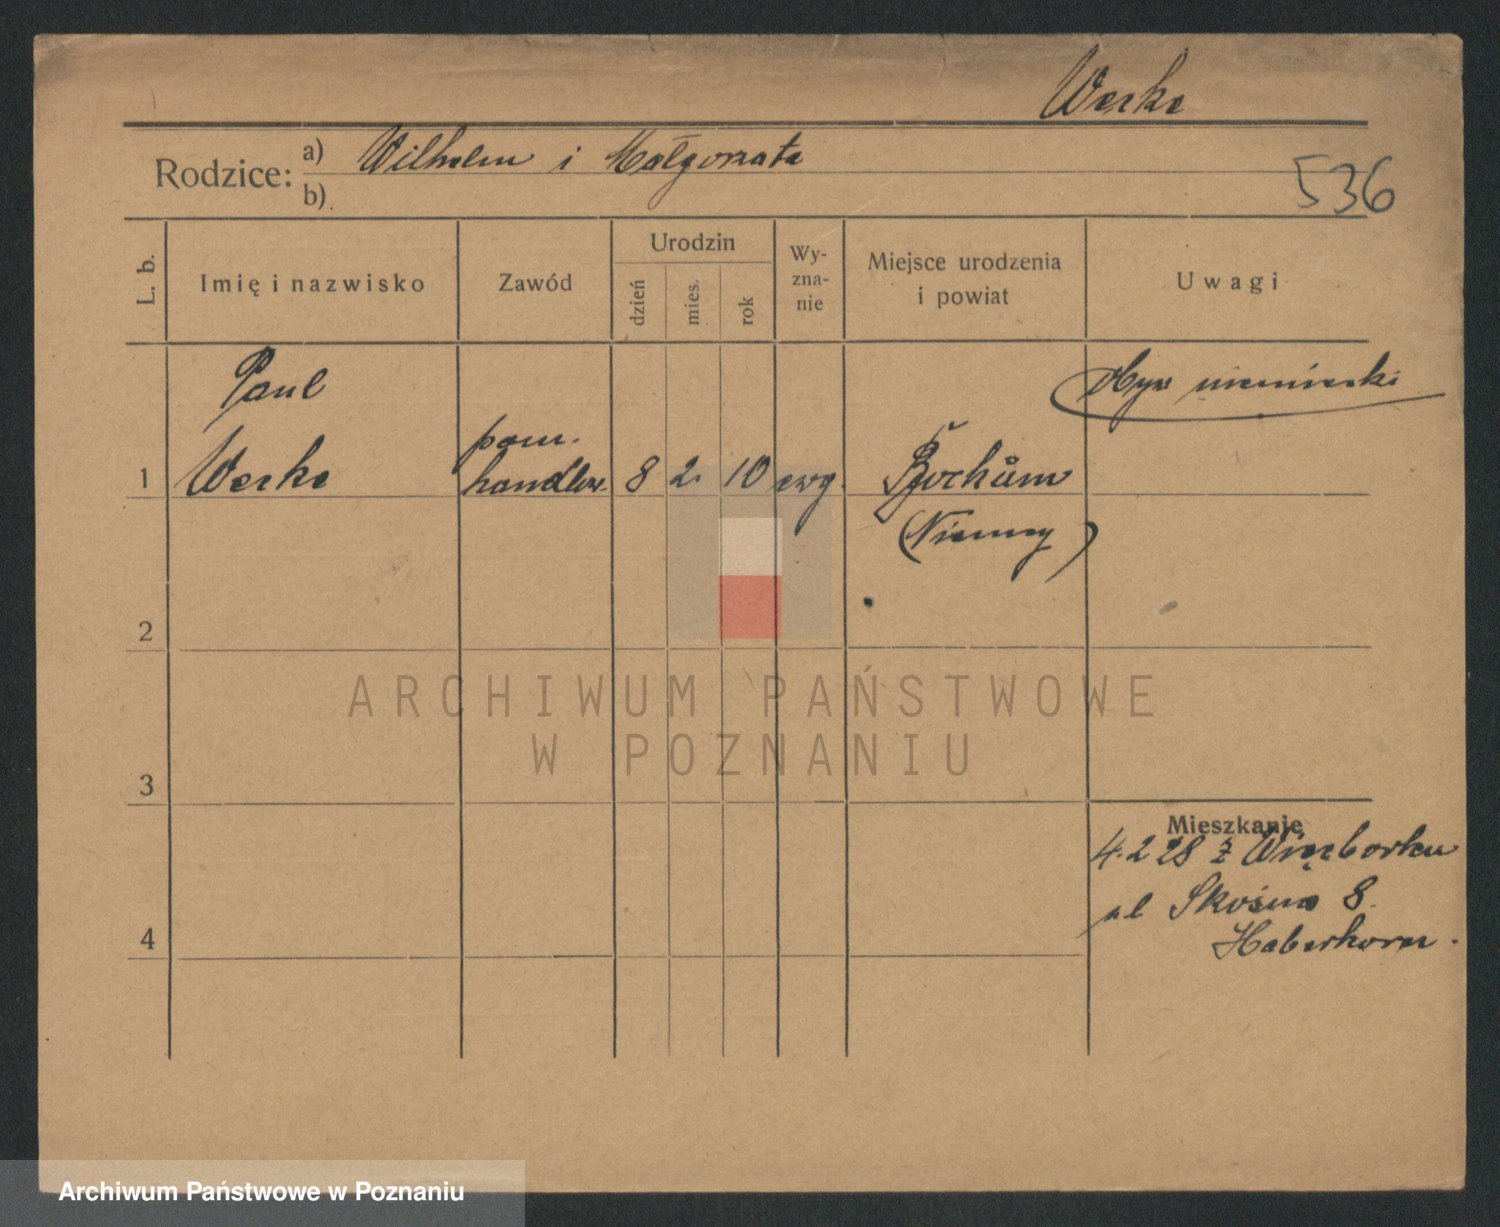 Werke
Rodzice: a) Wilhelm i Małgorzata
b)
536
L. b.
Imię i nazwisko
Zawód
Urodzin
dzień
mies.
rok
Wy-
zna-
nie
Miejsce urodzenia
i powiat
Uwagi
Obyw niemiecki
Paul
1 Werke
pom.
handlow. 8 2. 10 ewg.
Bochům
(Niemcy)
2
3
4
Mieszkanie
4.2 28 z Więcborku
ul Skośna 8.
Haberkorn.
ARCHIWUM PAŃSTWOWE
W POZNANIU
Archiwum Państwowe w Poznaniu